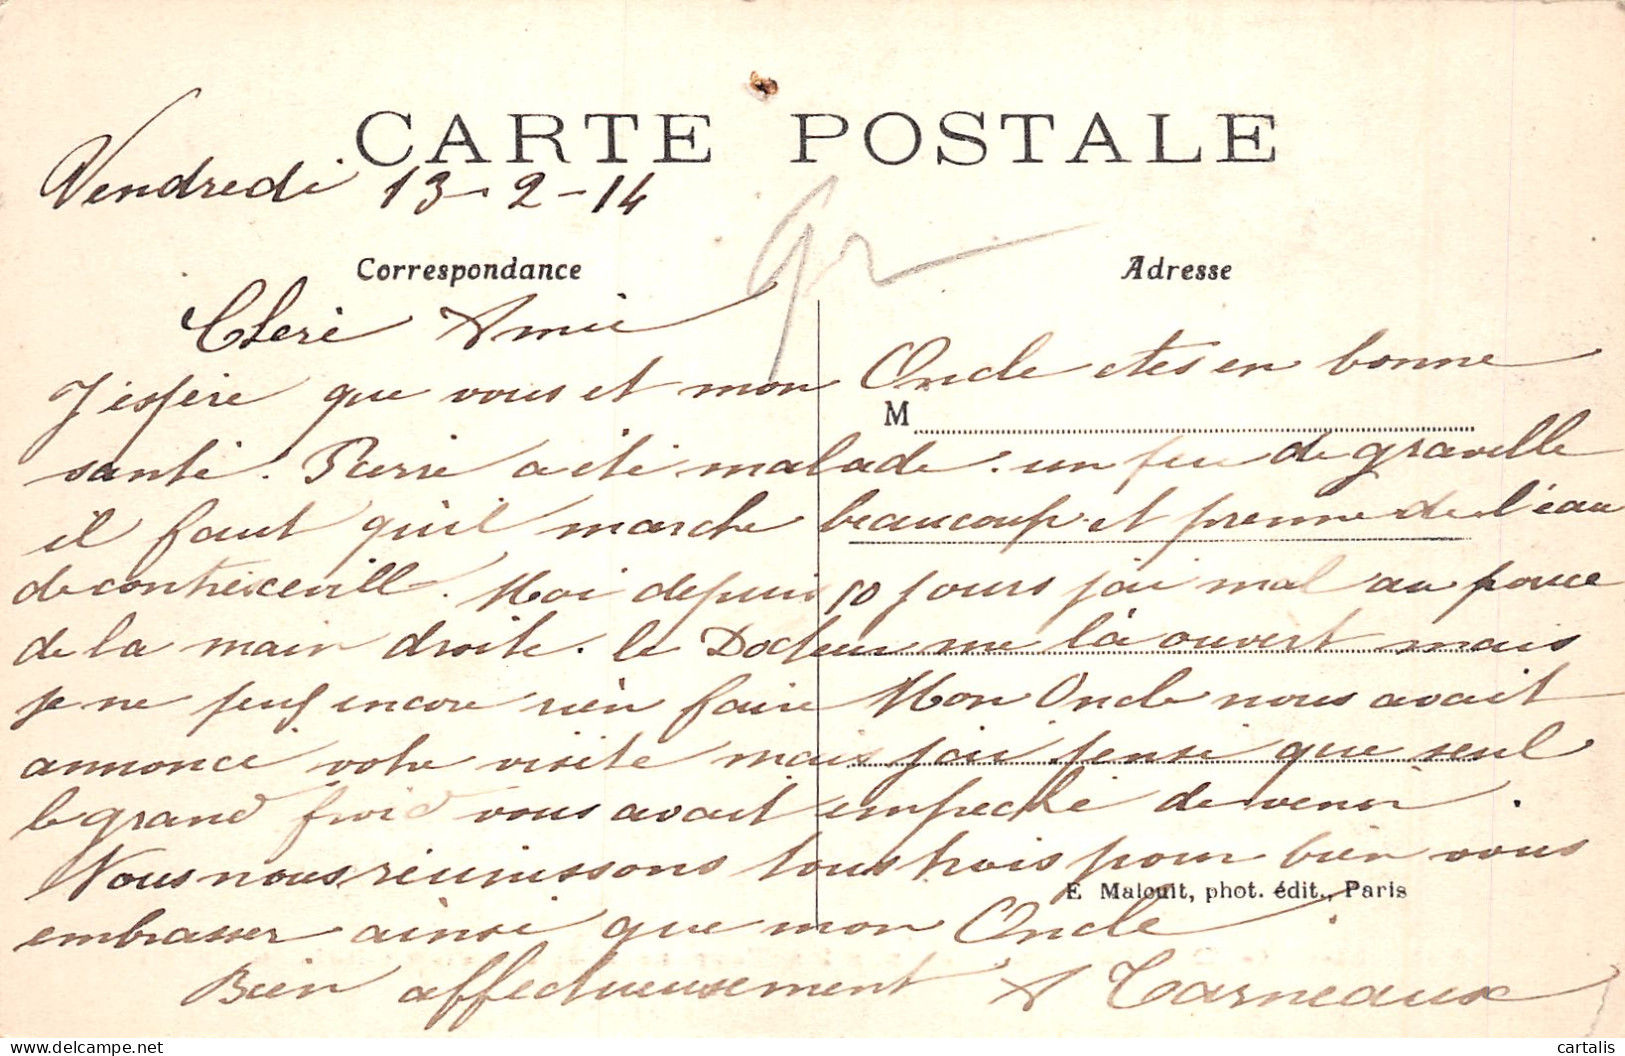 CARTE POSTALE
Vendredi 13-2-14
Correspondance
Adresse
Chère Amie
J'espère que vous et mon Oncle etes en bonne
M
santé. Pierre a été malade. un peu de gravelle
il faut qu'il marche beaucoup et prenne de l'eau
de contrexeville. Moi depuis 10 jours j'ai mal au pouce
de la main droite. le Docteur me là ouvert mais
je ne peus encore rien faire Mon Oncle nous avait
annoncé votre visite mais j'ai pensé que seul
le grand froid vous avait empeché de venir.
Nous nous réunissons tous trois pour bien vous
E Malcuit, phot. édit., Paris
embrasser ainsi que mon Oncle.
Bien affectueusement A Carneaux
cartalis
delcampe.net